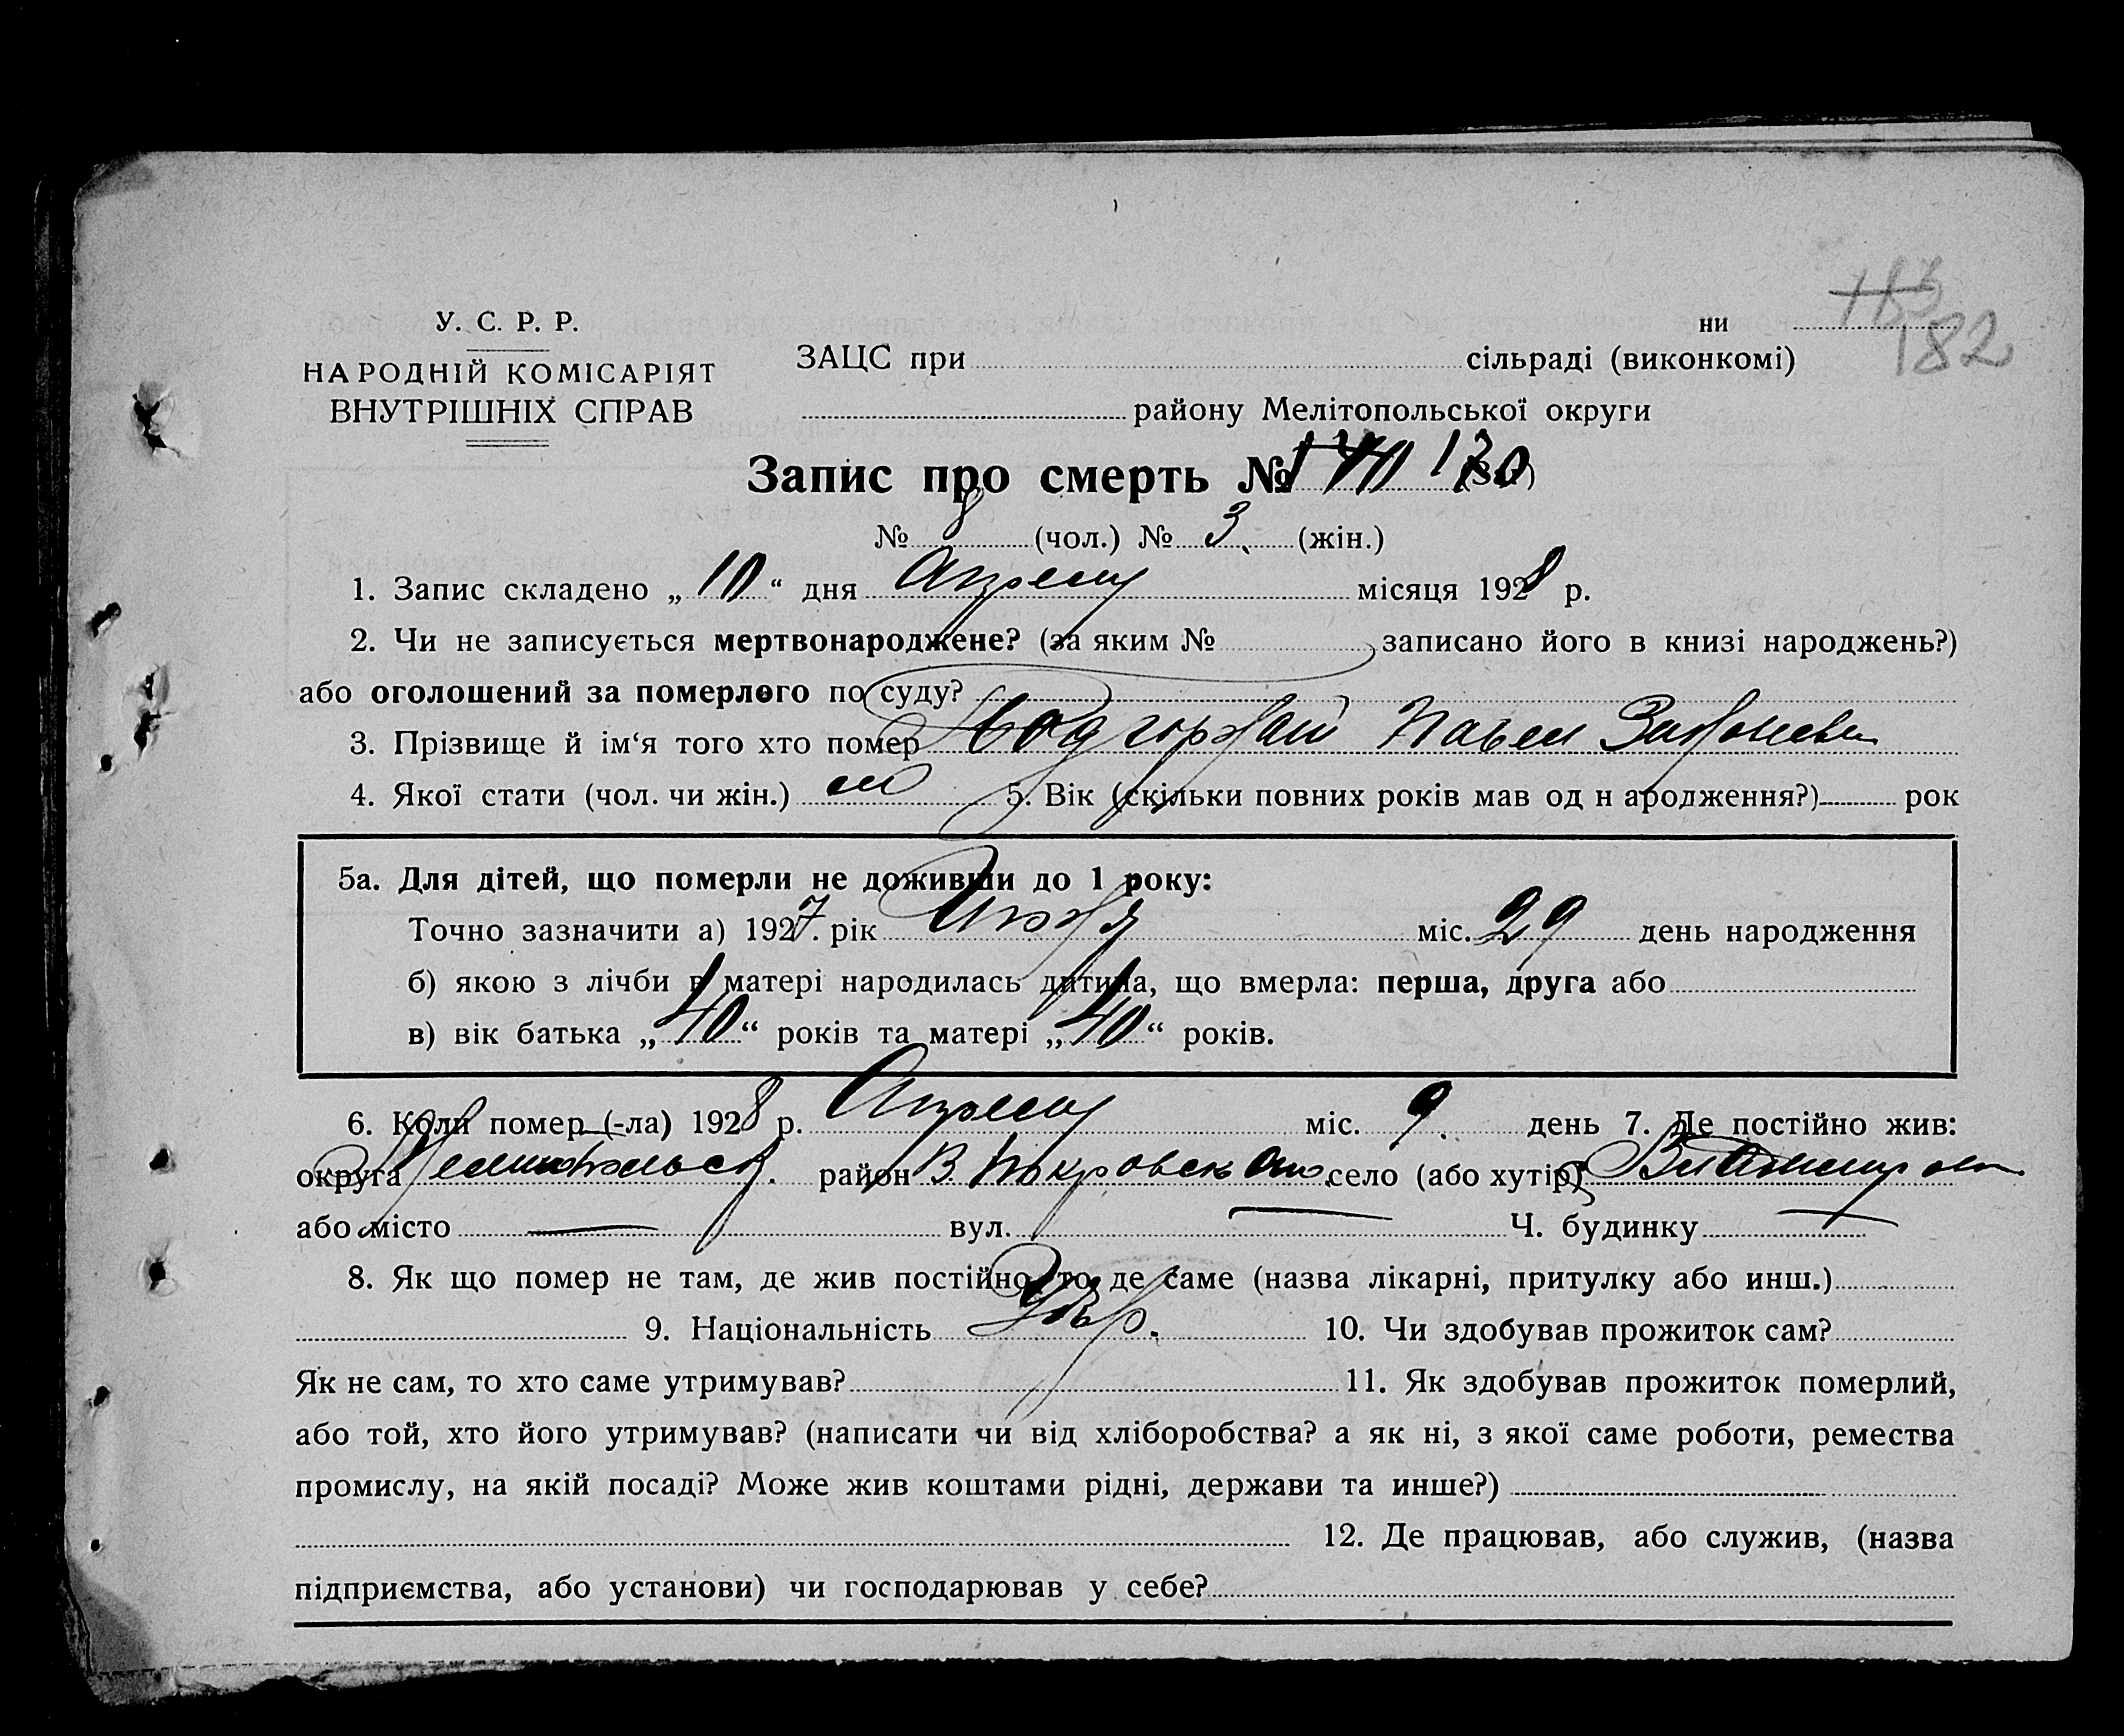 182
У. С. Р. Р.
НАРОДНІЙ КОМІСАРІЯТ
ВНУТРІШНІХ СПРАВ
ни
ЗАЦС при сільраді (виконкомі)
району Мелітопольської округи
Запис про смерть №
№ 8 (чол.) № 3. (жін.)
1. Запис складено „ 10 “ дня Апреля місяця 1928 р.
2. Чи не записується мертвонароджене? (за яким № записано його в книзі народжень?)
або оголошений за померлого по суду?
3. Прізвище й ім‘я того хто помер Павел
4. Якої стати (чол. чи жін.) м 5. Вік (скільки повних років мав од н ародження?) рок
5а. Для дітей, що померли не доживши до 1 року:
Точно зазначити а) 1927. рік міс. 29 день народження
б) якою з лічби в матері народилась дитина, що вмерла: перша, друга або
в) вік батька „ 40 “ років та матері „ 40 “ років.
6. Коли помер (-ла) 1928 р. Апреля міс. 9. день 7. Де постійно жив:
округа Мелитопольск. район В. Покровск село (або хутір)
або місто — вул. — Ч. будинку —
8. Як що помер не там, де жив постійно, то де саме (назва лікарні, притулку або инш.)
9. Національність Укр. 10. Чи здобував прожиток сам?
Як не сам, то хто саме утримував? 11. Як здобував прожиток померлий,
або той, хто його утримував? (написати чи від хліборобства? а як ні, з якої саме роботи, ремества
промислу, на якій посаді? Може жив коштами рідні, держави та инше?)
12. Де працював, або служив, (назва
підприємства, або установи) чи господарював у себе?